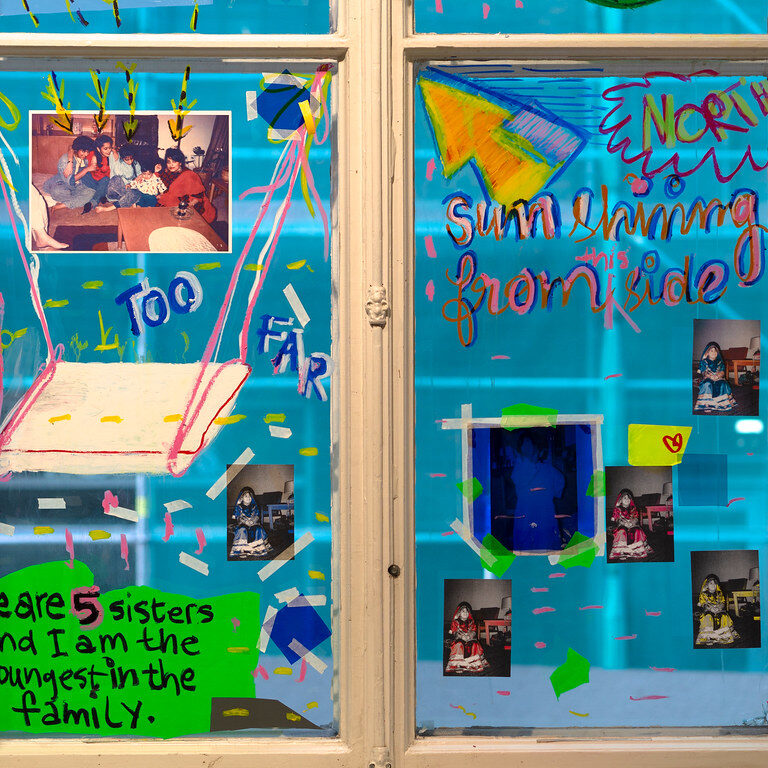 TOO
FAR
eare 5 sisters
nd I am the
oungest in the
family.
NORTH
sun shining
from this side